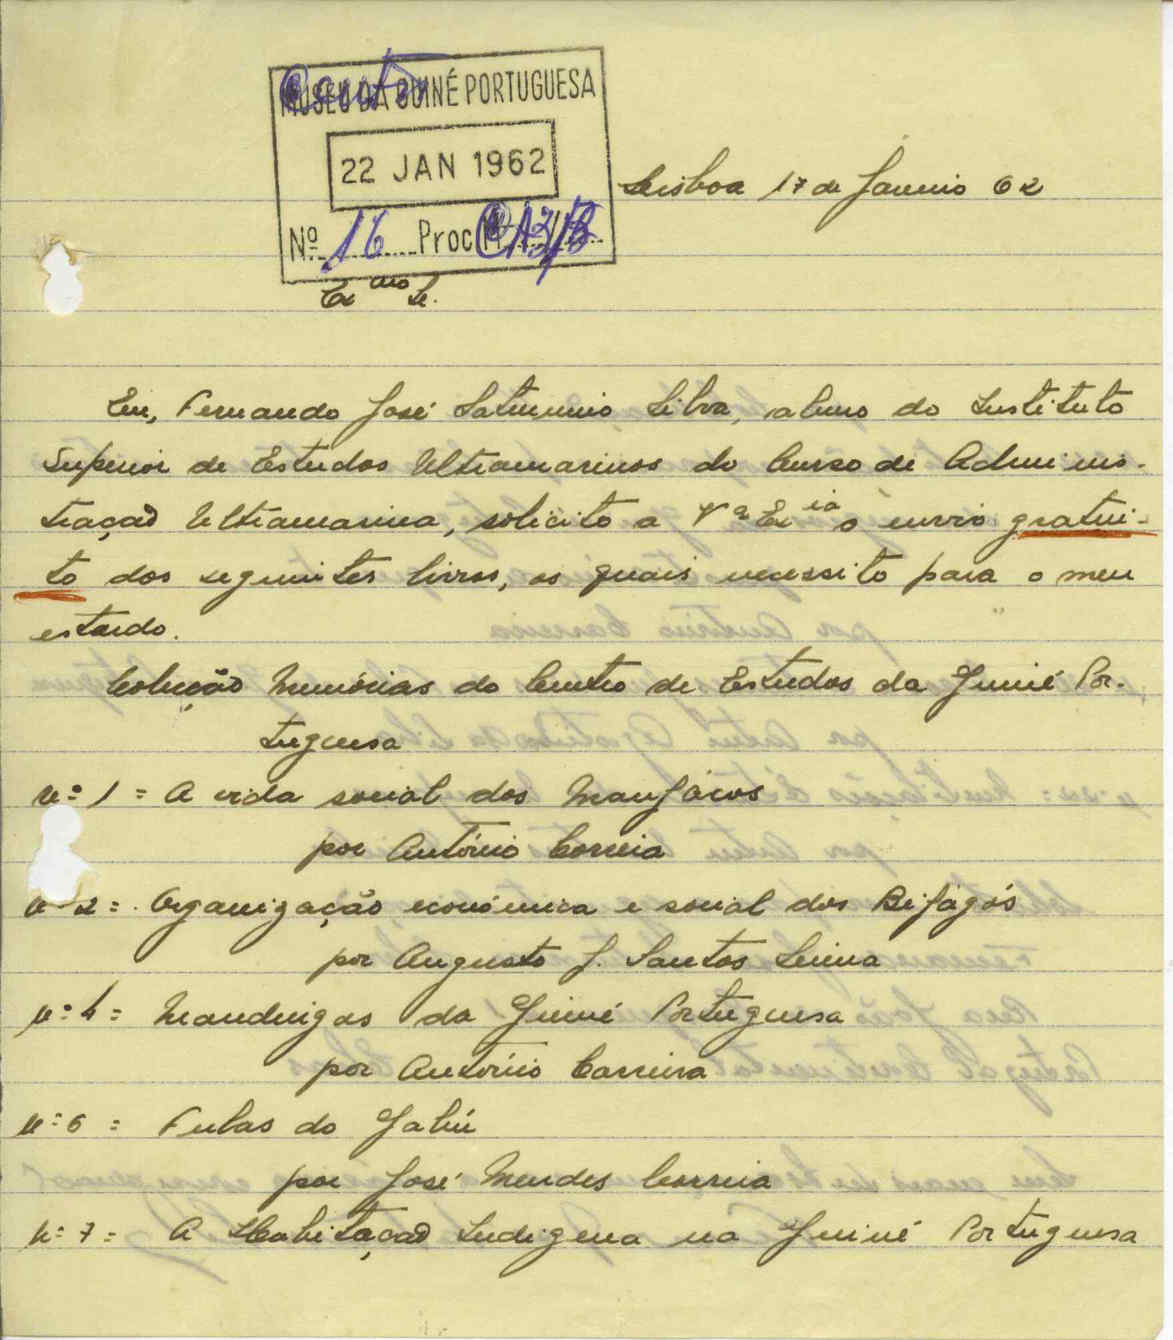 MUSEU DA GUINÉ PORTUGUESA
22 JAN 1962
Nº 16 Proc
Lisboa 17 de Janeiro 62
Exmo Sr.
Eu, Fernando José Saturnino Silva, aluno do Instituto
Superior de Estudos Ultramarinos do Curso de Adminis-
tração Ultramarina, solicito a Vª Exia o envio gratui-
to dos seguintes livros, os quais necessito para o meu
estudo.
Colecção Memórias do Centro de Estudos da Guiné Por-
tuguesa
nº 1 = A vida social dos Manjacos
por António Correia
nº 2 = Organização económica e social dos Bijagós
por Augusto J. Santos Lima
nº 4 = Mandingas da Guiné Portuguesa
por António Carreira
nº 6 = Fulas do Gabú
por José Mendes Correia
nº 7 = A Habitação Indígena na Guiné Portuguesa